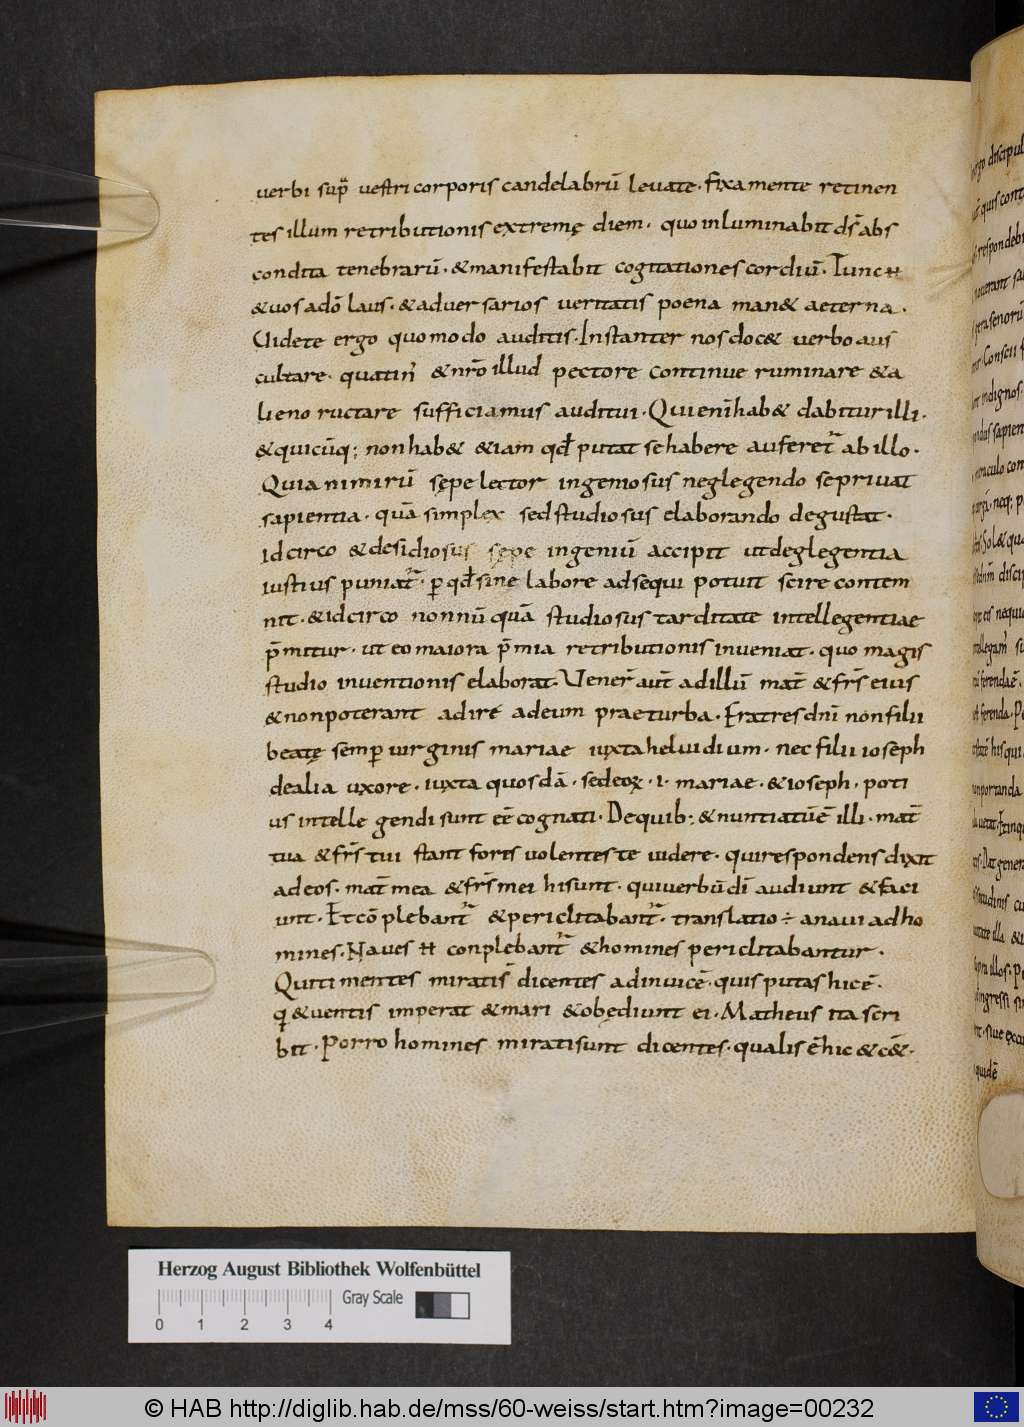 verbi sup̄ vestri corporis candelabrū levate. fixa mente retinen
tes illum retributionis extremę diem. quo inluminabit dn̄s abs
condita tenebrarū. & manifestabit cogitationes cordiū. Tunc
& vos a dō laus. & adversarios veritatis poena man& aeterna.
Videte ergo quomodo auditis. Instanter nos doc& verbo aus
cultare. quatin' & nr̄o illud pectore continue ruminare & a
lieno ructare sufficiamus auditui. Qui enī hab& dabitur illi.
& quicūq; non hab& & iam qđ putat se habere aufer& ab illo.
Quia nimirū sępe lector ingeniosus neglegendo se privat
sapientia. quā simplex sed studiosus elaborando degustat.
Idcirco & desidiosus sępe ingeniū accipit ut de glegentia
iustius puniat. ꝑ qđ sine labore adsequi potuit scire contem
nit. & idcirco non nūquā studiosus tarditate intellegentiae
p̄mitur. ut eo maiora p̄mia retributionis inveniat. quo magis
studio inventionis elaborat. Vener̄ aut̄ ad illū mat̄ & fr̄s eius
& non poterant adire ad eum prae turba. Fratres dn̄i non filii
beatę semꝑ virginis mariae iuxta helvidium. nec filii ioseph
de alia uxore. iuxta quosdā. sed eoꝝ .i. mariae. & ioseph. poti
us intellegendi sunt eē cognati. De quib; & nuntiatū ē illi. mat̄
tua & fr̄s tui stant foris volentes te videre. qui respondens dixit
ad eos. mat̄ mea & fr̄s mei hi sunt. qui verbū dī audiunt & faci
unt. Et cōplebant & periclitabant. translatio ÷ a navi ad ho
mines. Naves conplebant & homines periclitabantur.
Qui timentes mirati s̄ dicentes ad invicē. quis putas hic ē.
q & ventis imperat & mari & obędiunt ei. Matheus ita scri
bit. Porro homines mirati sunt dicentes. qualis ē hic & c&.
Herzog August Bibliothek Wolfenbüttel
Gray Scale
0 1 2 3 4
© HAB http://diglib.hab.de/mss/60-weiss/start.htm?image=00232